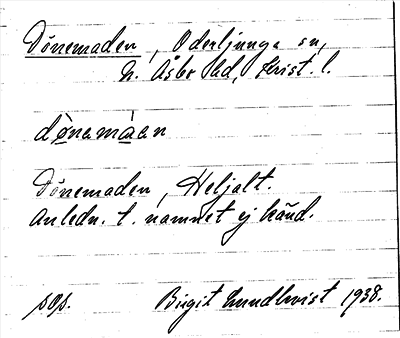 Dönemaden, Oderljunga sn,
N. Åsbo hd, Krist. l.
dønemaen
Dönemaden, Heljalt.
Anledn. t. namnet ej känd.
sop. Birgit Lundkvist 1938.